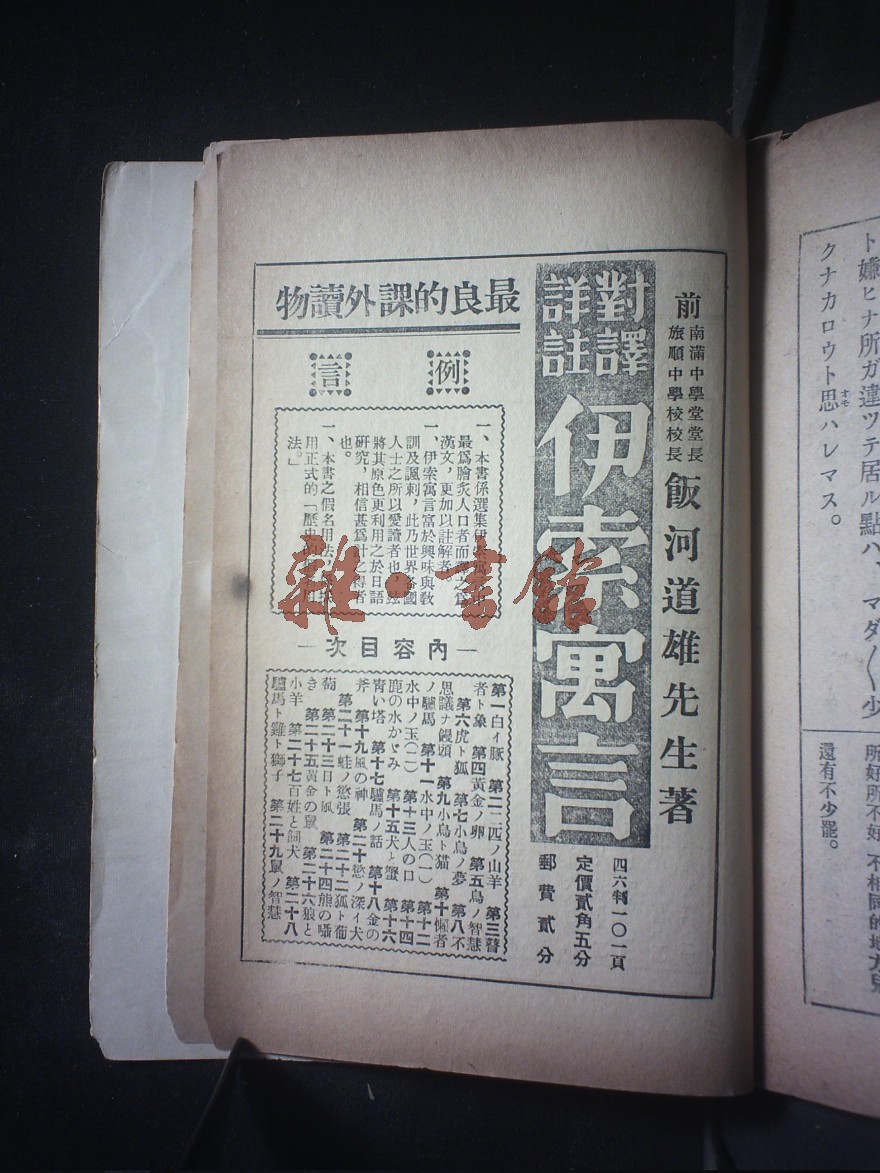 ト嫌ヒナ所ガ違ツテ居ル點ハ、マダ〱少
クナカロウト思ハレマス。
オモ
所好所不好
不相同的地方兒
還有不少罷。
前
南滿中學堂堂長
旅順中學校校長
飯河道雄先生著
對譯
詳註
伊索寓言
四六判一〇一頁
定價貳角五分
郵費貳分
最良的課外讀物
例言
一、本書係選集伊索寓言中
最爲膾炙人口者而譯之爲
漢文，更加以註解者
一、伊索寓言富於興味與敎
訓及諷刺，此乃世界各國
人士之所以愛讀者也，玆
將其原色更利用之於日語
研究，相信甚爲計之得者
也。
一、本書之假名用法
用正式的「歷史的
法。」
內容目次
第一白イ豚 第二二匹ノ山羊 第三瞽
者ト象 第四黃金ノ卵 第五烏ノ智慧
第六虎ト狐 第七小鳥ノ夢 第八不
思議ナ饅頭 第九小鳥ト猫 第十懶者
ノ驢馬 第十一水中ノ玉(一) 第十二
水中ノ玉(二) 第十三人の口 第十四
鹿の水かゞみ 第十五犬と蟹 第十六
靑い塔 第十七驢馬ノ話 第十八金の
斧 第十九風の神 第二十慾ノ深イ犬
第二十一蛙ノ慾張 第二十二狐ト葡
萄 第二十三日ト風 第二十四熊の囁
き 第二十五黃金の鼠 第二十六狼と
小羊 第二十七百姓と飼犬 第二十八
驢馬ト雞ト獅子 第二十九鼠ノ智慧
雜·書館